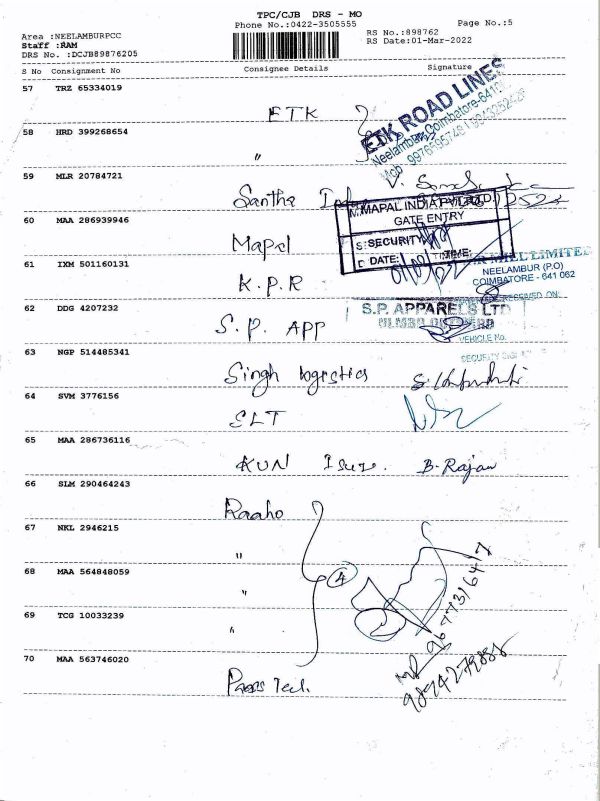 TPC/CJB DRS - MO
Phone No.:0422-3505555
Page No.:5
Area :NEELAMBURPCC
RS No.:898762
Staff :RAM
RS Date:01-Mar-2022
DRS No. :DCJB89876205
S No Consignment No Consignee Details Signature
57 TRZ 65334019
ETK
ETK ROAD LINES
Neelambur, Coimbatore-641
58 HRD 399268654
"
59 MLR 20784721
Santha
60 MAA 286939946
Mapal
MAPAL INDIA PVT. LTD.
GATE ENTRY
SECURITY
DATE: TIME:
01/03/22
61 IXM 501160131
K.P.R
MILL LIMITED
NEELAMBUR (P.O)
COIMBATORE - 641 062
62 DDG 4207232
S.P. APP
S.P. APPARELS LTD
VEHICLE No.
63 NGP 514485341
Singh logistics
64 SVM 3776156
SLT
65 MAA 286736116
KUN Isuz. B. Rajan
66 SLM 290464243
Raaho
67 NKL 2946215
"
68 MAA 564848059
"
4
69 TCG 10033239
"
70 MAA 563746020
Tech.